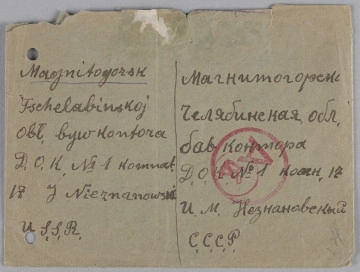 Magnitogorsk
Tschelabinskoj
obł. byw kontora
D.O.K. № 1 komnat
17 J Nieznanowski
U.S.S.R.
Магнитогорск
Челябинская обл.
бав контора
Д.О.К. № 1 комн. 17
И.М. Незнановский
С.С.С.Р